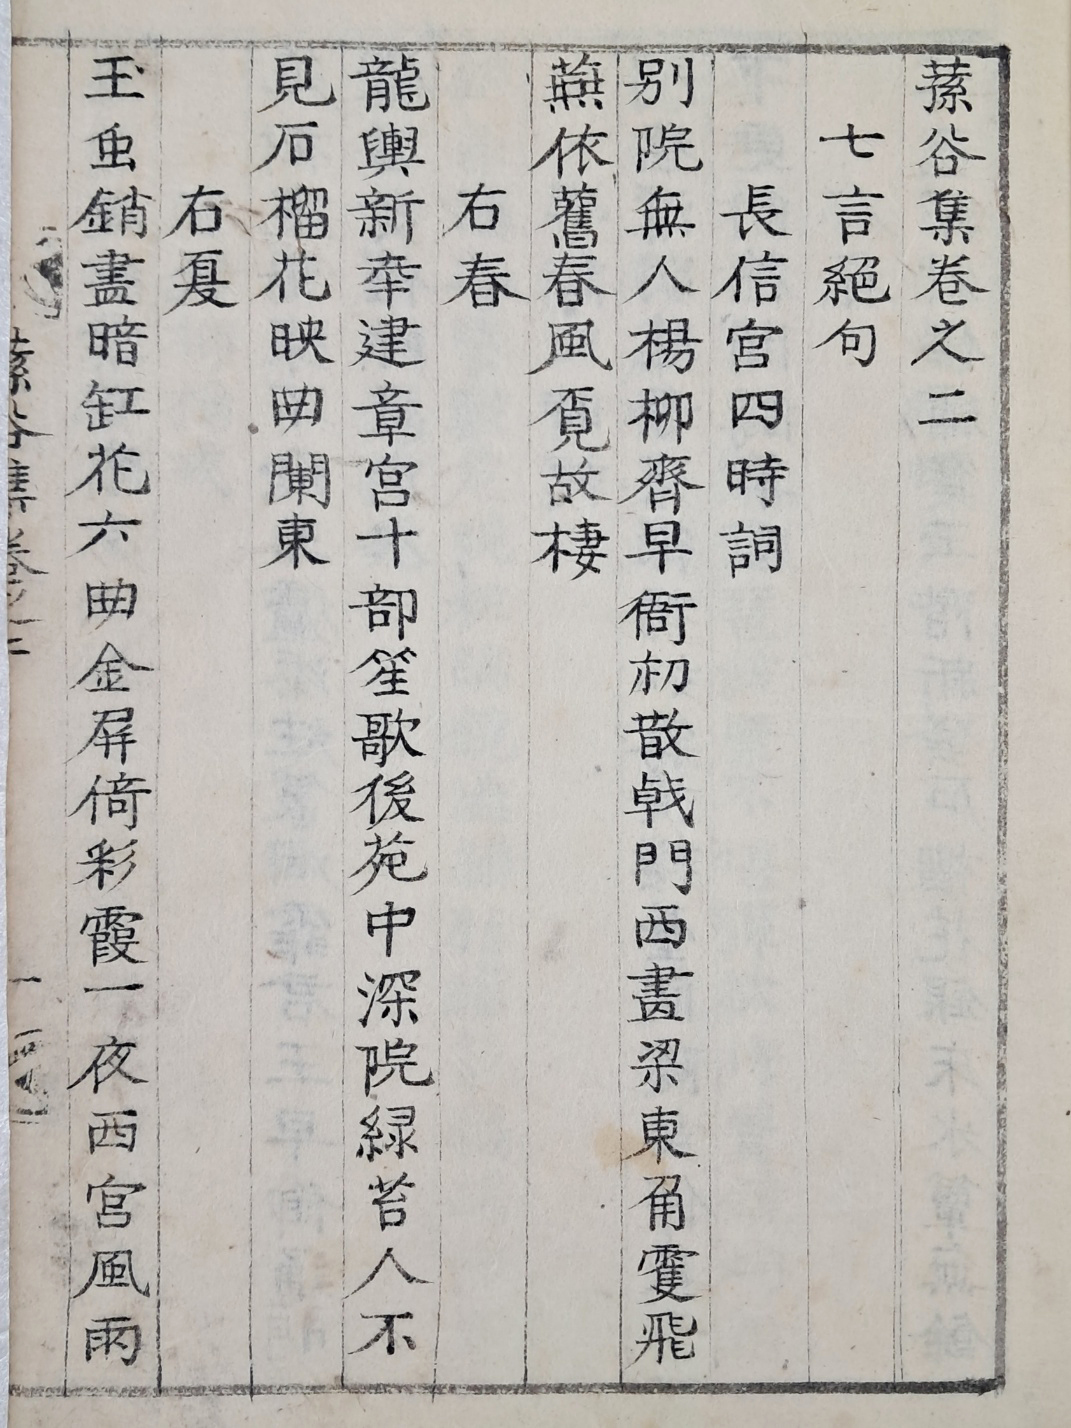 蓀谷集卷之二
七言絕句
長信宮四時詞
別院無人楊柳齊早衙初散戟門西畫梁東角雙飛
蕪依舊春風覓故棲
右春
龍輿新幸建章宮十部笙歌後苑中深院緑苔人不
見石榴花映曲闌東
右夏
玉虫銷盡暗缸花六曲金屏倚彩霞一夜西宮風雨
蓀谷集卷之二
一